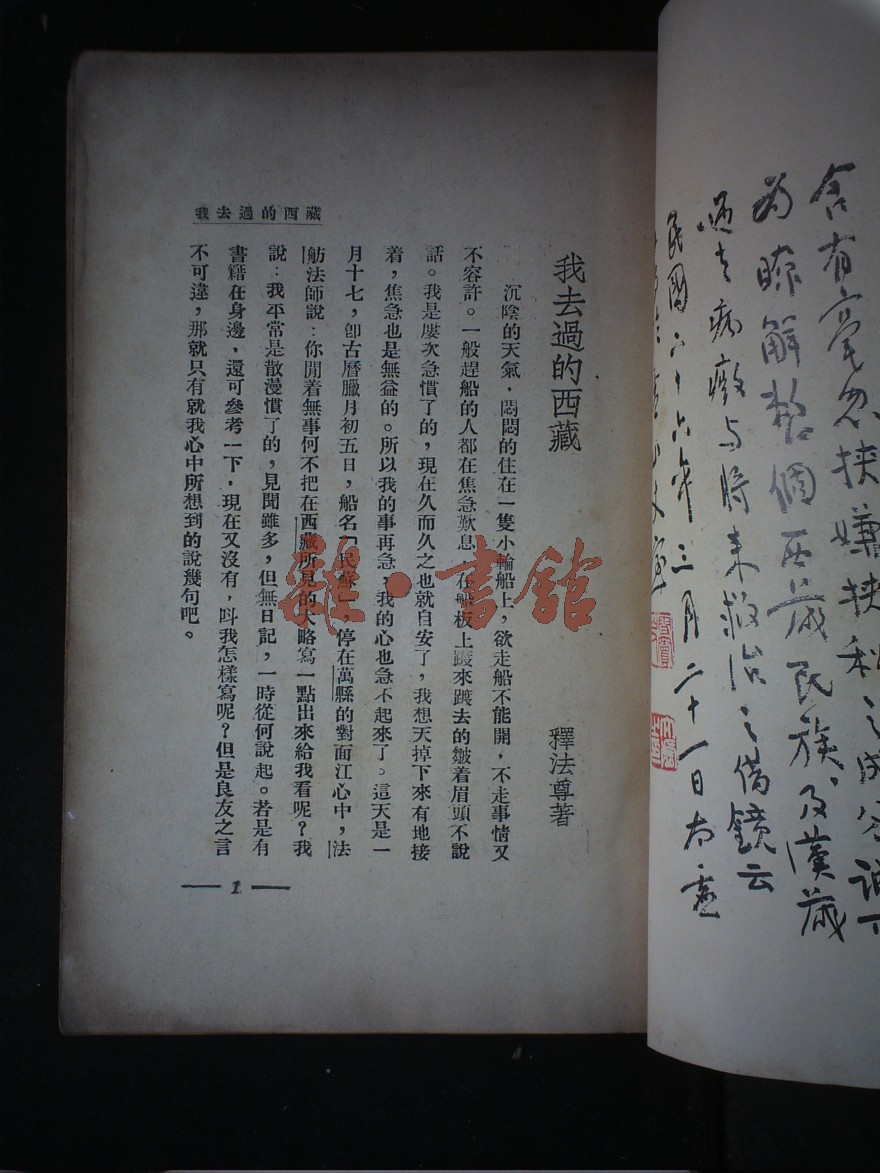 含有毫忽挾嫌挾私之成分
為瞭解整個西藏民族及漢藏
過去病癥与時来救治之借鏡云
民國二十六年三月二十一日太虛
我去過的西藏
我去過的西藏　釋法尊著
沉陰的天氣，悶悶的住在一隻小輪船上，欲走船不能開，不走事情又
不容許。一般趕船的人都在焦急歎息，在船板上踱來踱去的皺着眉頭不說
話。我是屢次急慣了的，現在久而久之也就自安了，我想天掉下來有地接
着，焦急也是無益的。所以我的事再急，我的心也急不起來了。這天是一
月十七，卽古曆臘月初五日，船名「民蘇」，停在萬縣的對面江心中，法
舫法師說：你閒着無事何不把在西藏所見的大略寫一點出來給我看呢？我
說：我平常是散漫慣了的，見聞雖多，但無日記，一時從何說起。若是有
書籍在身邊，還可參考一下，現在又沒有，呌我怎樣寫呢？但是良友之言
不可違，那就只有就我心中所想到的說幾句吧。
1
雜·書館